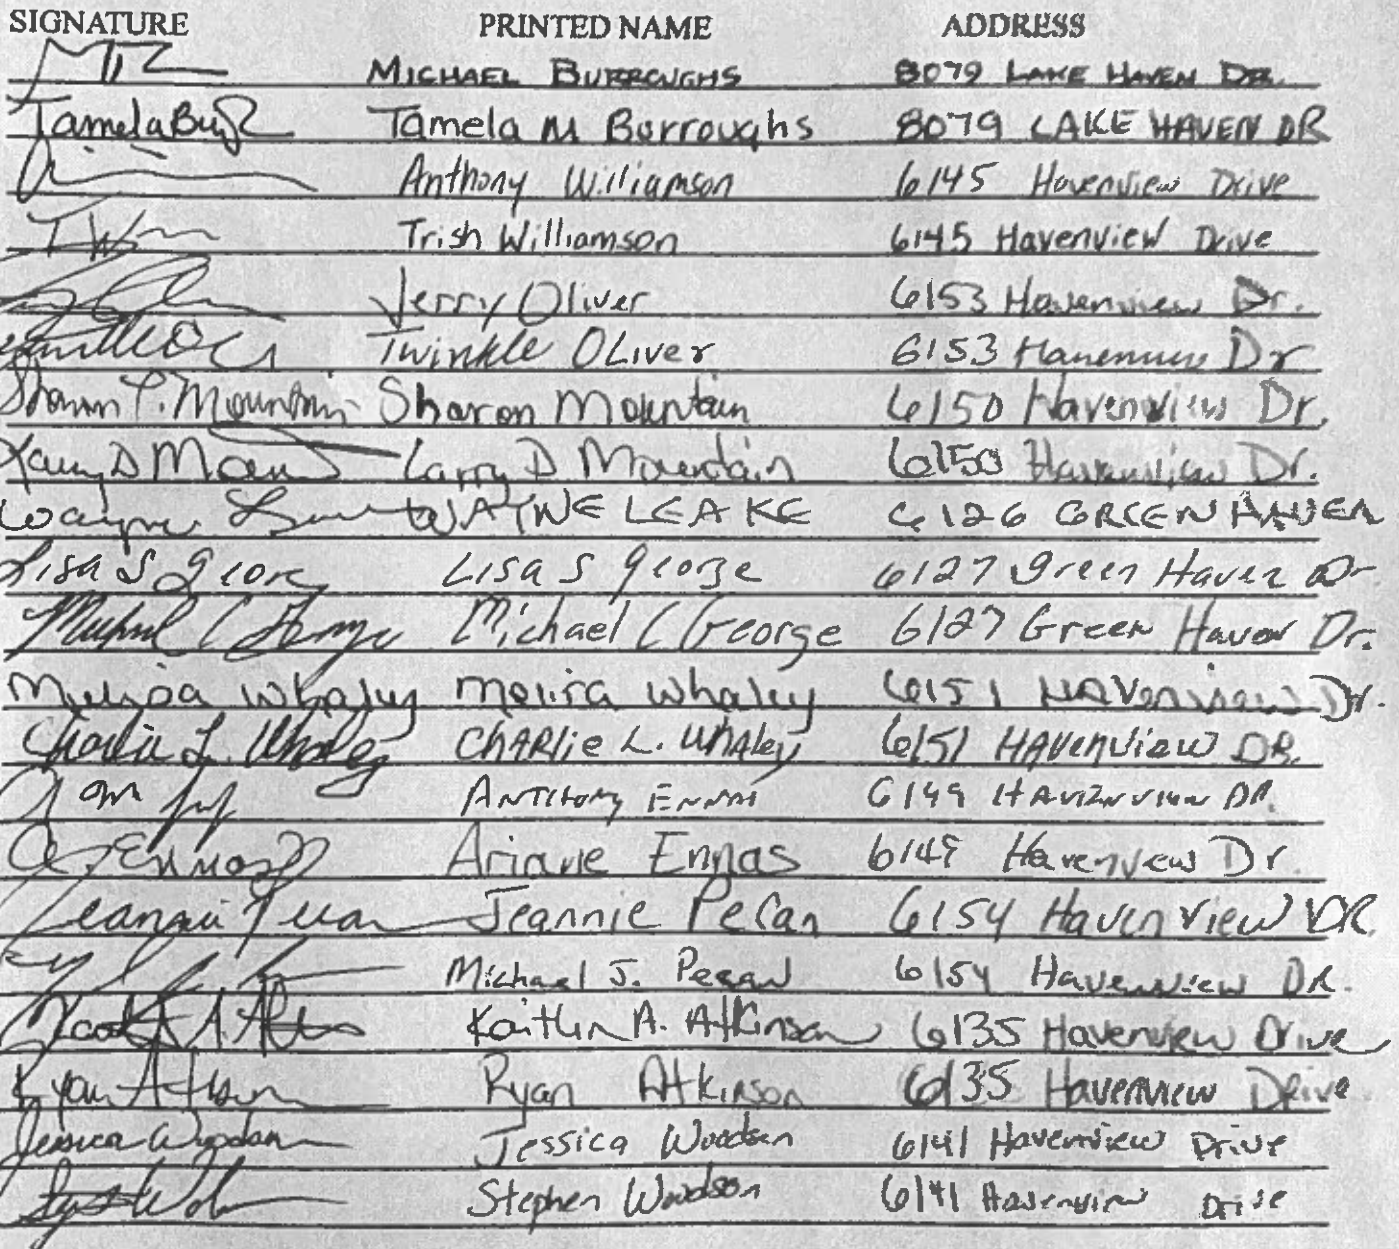 SIGNATURE PRINTED NAME ADDRESS
MICHAEL BURROUGHS 8079 LAKE HAVEN DR.
Tamela Tamela M Burroughs 8079 LAKE HAVEN DR
Anthony Williamson 6145 Havenview Drive
Trish Williamson 6145 Havenview Drive
Jerry Oliver 6153 Havenview Dr.
Twinkle OLiver 6153 Havenview Dr
Sharon P. Mountain Sharon Mountain 6150 Havenview Dr.
Larry D Larry D Mountain 6150 Havenview Dr.
Wayne WAYNE LEAKE 6126 GREEN HAVEN
Lisa S George Lisa S George 6127 Green Haven Dr
Michael C George Michael C George 6127 Green Haven Dr.
Melisa Whaley Melisa Whaley 6151 HAVenview Dr.
Charlie L. Whaley CHARlie L. Whaley 6151 HAVenview DR.
ANTHONY ENNAS 6149 HAVENVIEW DR.
Ariane Ennas 6149 Havenview Dr.
Jeannie Pecan Jeannie Pecan 6154 Haven View DR.
Michael J. Pecan 6154 Havenview DR.
A. Kaitlin A. Atkinson 6135 Havenview Drive
Ryan Atkinson Ryan Atkinson 6135 Havenview Drive
Jessica Woodson Jessica Woodson 6141 Havenview Drive
Stephen Woodson 6141 Havenview Drive